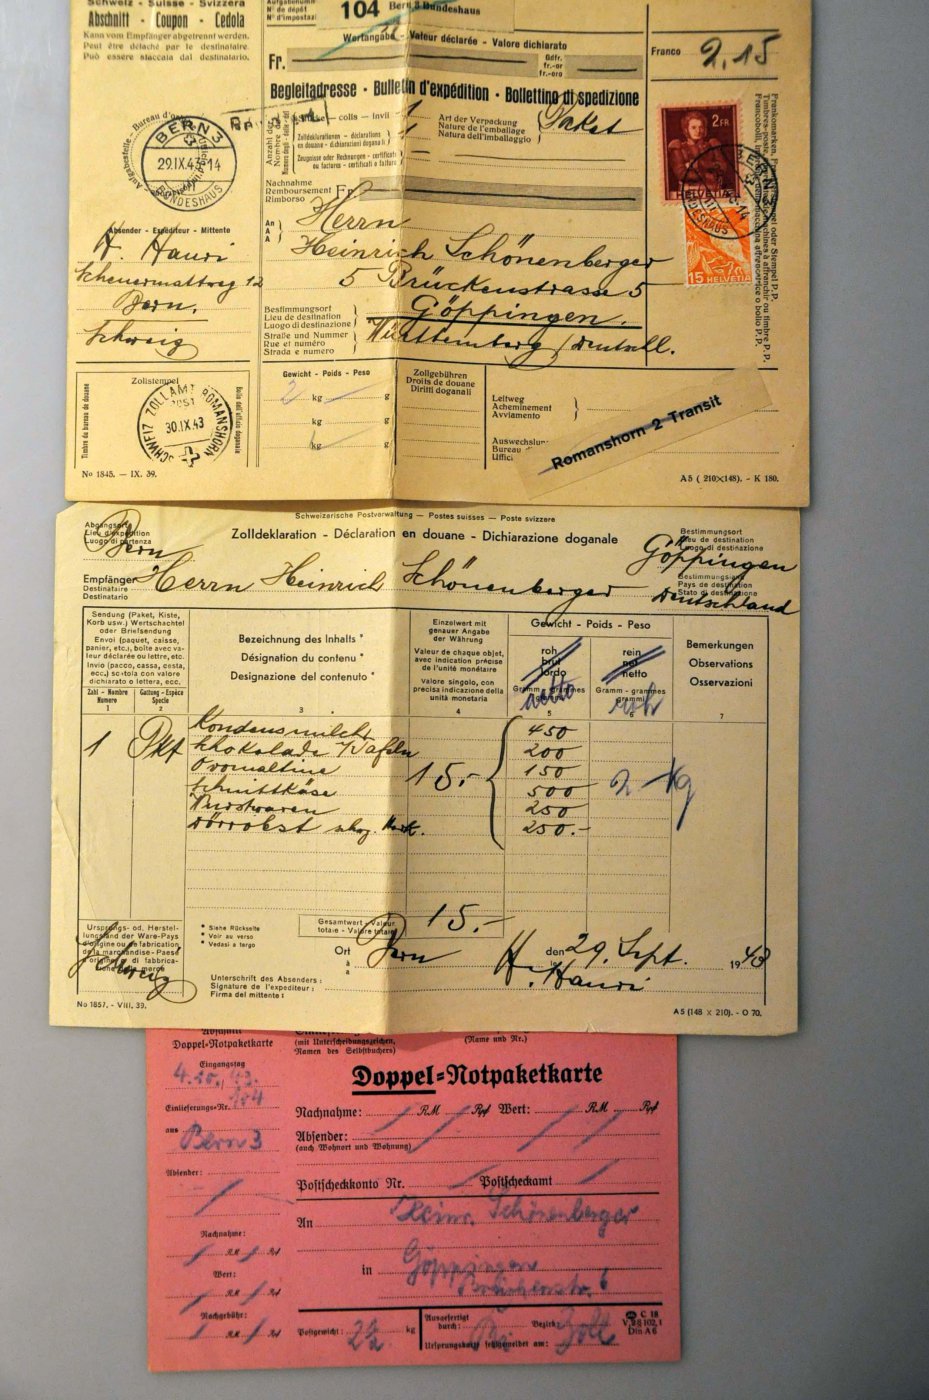 Schweiz - Suisse - Svizzera
Abschnitt - Coupon - Cedola
Kann vom Empfänger abgetrennt werden.
Peut être détaché par le destinataire.
Può essere staccata dal destinatario.
Aufgabenumm
N° de dépôt
N° d'impostazi
104 Bern 3 Bundeshaus
Wertangabe - Valeur déclarée - Valore dichiarato
Fr.
Gdfr.
fr.-or
fr.-oro
Franco
2.15
Begleitadresse - Bulletin d'expédition - Bollettino di spedizione
Anzahl der
Nombre des
colis - invii 1
Zolldeklarationen - déclarations
en douane - dichiarazioni doganali
1
Zeugnisse oder Rechnungen - certificats
ou factures - certificati e fatture
Art der Verpackung
Nature de l'emballage
Natura dell'imballaggio
Paket
Nachnahme
Remboursement
Rimborso
Fr
Aufgabestelle - Bureau d'
BERN 3
29.IX.43-14
BUNDESHAUS
2 FR
HELVETIA
15 HELVETIA
BERN 3
BUNDESHAUS
Absender - Expéditeur - Mittente
H. Hauri
Scheuermattweg 12
Bern.
Schweiz
An
A
A
Herrn
Heinrich Schönenberger
5 Brückenstrasse 5
Bestimmungsort
Lieu de destination
Luogo di destinazione
Göppingen.
Straße und Nummer
Rue et numéro
Strada e numero
Württemberg / Deutschl.
Zollstempel
Timbre du bureau de douane
Bollo dell'ufficio doganale
SCHWEIZ ZOLLAMT ROMANSHORN
30.IX.43
Gewicht - Poids - Peso
2 kg g
kg g
kg g
Zollgebühren
Droits de douane
Diritti doganali
Leitweg
Acheminement
Avviamento
Auswechslun
Bureau d
Uffici
Romanshorn 2 Transit
No 1845. - IX. 39.
A 5 ( 210×148). - K 180.
Schweizerische Postverwaltung — Postes suisses — Poste svizzere
Zolldeklaration - Déclaration en douane - Dichiarazione doganale
Abgangsort
Lieu d'expédition
Luogo di partenza
Bern
Bestimmungsort
Lieu de destination
Luogo di destinazione
Göppingen
Empfänger
Destinataire
Destinatario
Herrn Heinrich Schönenberger
Bestimmungsland
Pays de destination
Stato di destinazione
Deutschland
Sendung (Paket, Kiste,
Korb usw.) Wertschachtel
oder Briefsendung
Envoi (paquet, caisse,
panier, etc.), boîte avec va-
leur déclarée ou lettre, etc.
Invio (pacco, cassa, cesta,
ecc.) scatola con valore
dichiarato o lettera, ecc.
Zahl - Nombre
Numero
1
Gattung - Espèce
Specie
2
Bezeichnung des Inhalts *
Désignation du contenu *
Designazione del contenuto *
3
Einzelwert mit
genauer Angabe
der Währung
Valeur de chaque objet,
avec indication précise
de l'unité monétaire
Valore singolo, con
precisa indicazione della
unità monetaria
4
Gewicht - Poids - Peso
roh
brut
lordo
Gramm - grammes
netto
5
rein
net
netto
Gramm - grammes
grammi
roh
6
Bemerkungen
Observations
Osservazioni
7
1 Pkt
Kondensmilch 450
Schokolade 1/2 Tafeln 200
Ovomaltine 15.- 150
Schnittkäse 500 2 Kg
Wurstwaren 250
Dörrobst 250.-
Gesamtwert - Valeur
totale - Valore totale
15.-
Ursprungs- od. Herstel-
lungsland der Ware-Pays
d'origine ou de fabrication
de la marchandise - Paese
d'origine o di fabbrica-
zione della merce
Schweiz
* Siehe Rückseite
* Voir au verso
* Vedasi a tergo
Ort
à
a
Bern
den
le
29. Sept. 1943
Unterschrift des Absenders :
Signature de l'expéditeur :
Firma del mittente :
H. Hauri
No 1857. - VIII. 39.
A 5 (148 x 210). - O 70.
Abschnitt
Doppel-Notpaketkarte
Eingangstag
4.10. 43.
Einlieferungs-Nr. 104
aus
Bern 3
Absender:
Nachnahme:
RM Rpf
Wert:
RM Rpf
Nachgebühr:
RM Rpf
(mit Unterscheidungszeichen,
Namen des Selbstbuchers)
(Name und Nr.)
Doppel-Notpaketkarte
Nachnahme: RM Rpf Wert: RM Rpf
Absender:
(auch Wohnort und Wohnung)
Postscheckkonto Nr. Postscheckamt
An
Heinr. Schönenberger
in Göppingen
Brückenstr. 6
Postgewicht kg
Ausgefertigt
durch:
Bezirk
Zoll
Ursprungskarte festgemeldet am:
C 18
V, 2 § 102, 1
Din A 6